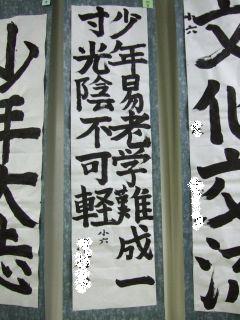 文化交流
小六
少年易老学難成一
寸光陰不可軽
小六
少年大志